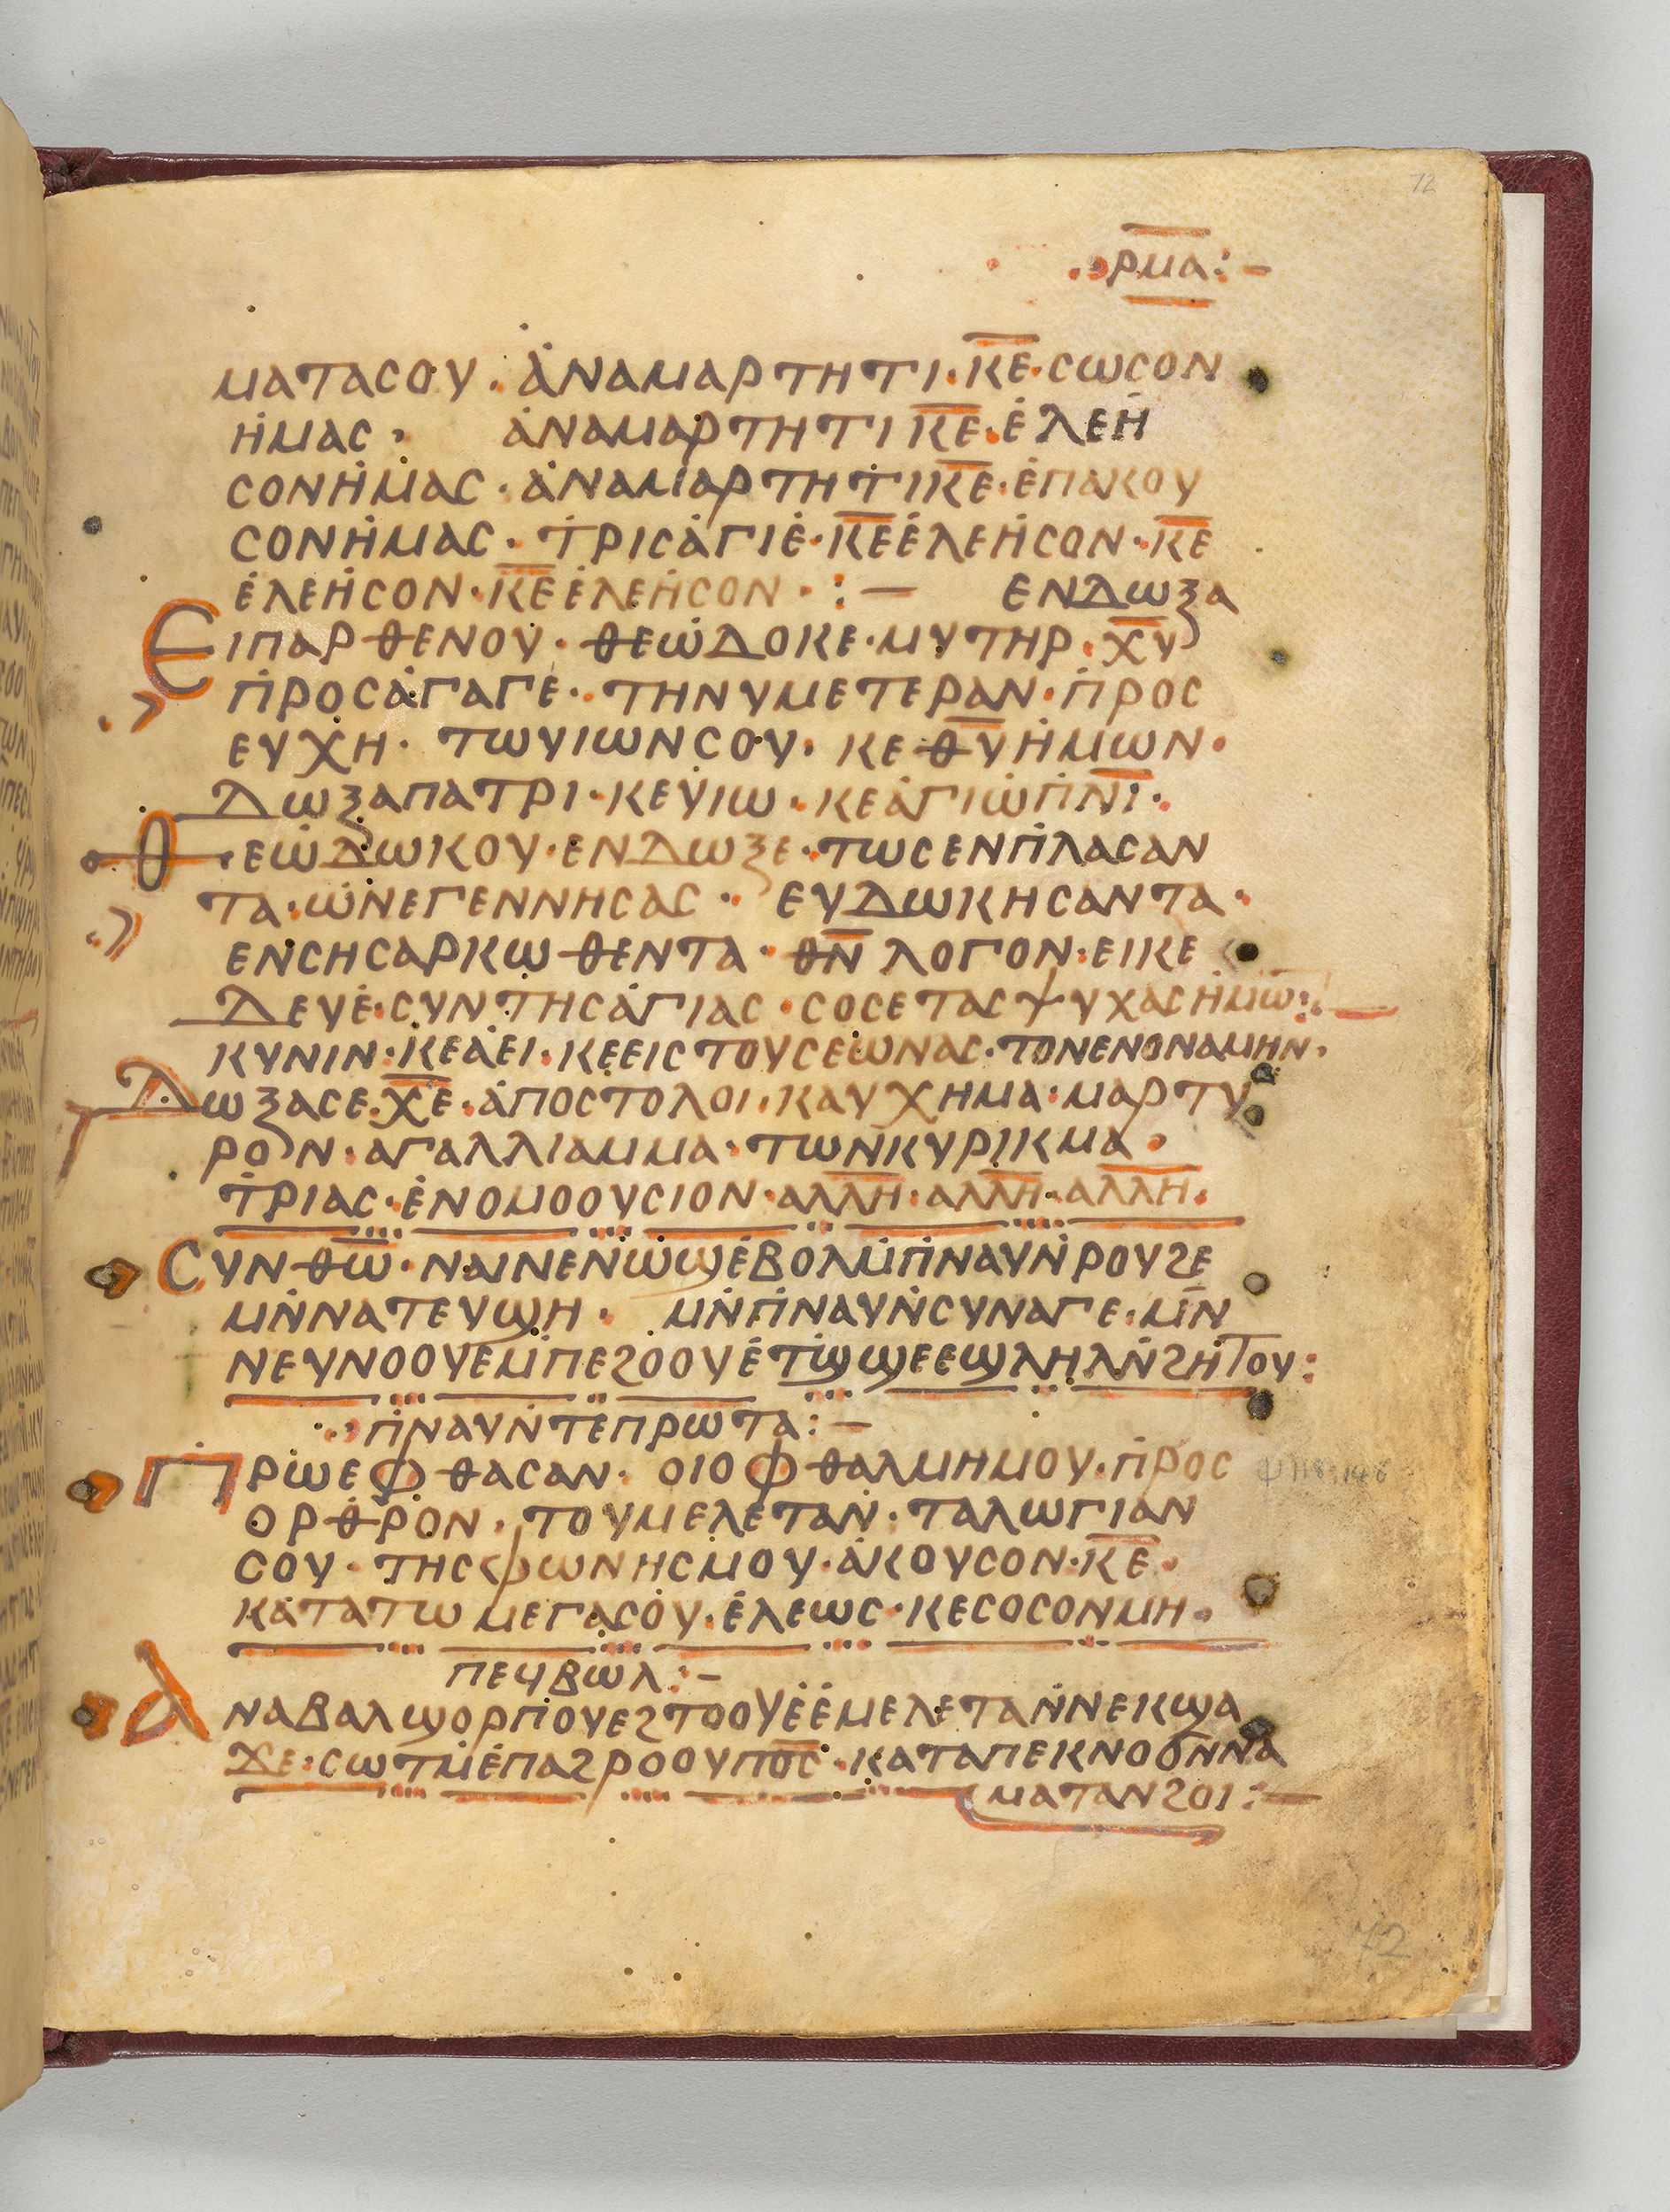 72
ⲣⲙⲁ:—
ⲙⲁⲧⲁⲥⲟⲩ· ⲁⲛⲁⲙⲁⲣⲧⲏⲧⲓ·ⲕ̅ⲉ̅·ⲥⲱⲥⲟⲛ
ⲏⲙⲁⲥ· ⲁⲛⲁⲙⲁⲣⲧⲏⲧⲓⲕ̅ⲉ̅·ⲉⲗⲉⲏ
ⲥⲟⲛⲏⲙⲁⲥ·ⲁⲛⲁⲙⲁⲣⲧⲏⲧⲓⲕ̅ⲉ̅·ⲉⲡⲁⲕⲟⲩ
ⲥⲟⲛⲏⲙⲁⲥ·ⲧⲣⲓⲥⲁⲅⲓⲉ·ⲕ̅ⲉ̅ⲉⲗⲉⲏⲥⲟⲛ·ⲕ̅ⲉ̅
ⲉⲗⲉⲏⲥⲟⲛ·ⲕ̅ⲉ̅ⲉⲗⲉⲏⲥⲟⲛ·:— ⲉⲛⲇⲱⲝⲁ
ⲉⲓⲡⲁⲣⲑⲉⲛⲟⲩ·ⲑⲉⲱⲇⲟⲕⲉ·ⲙⲩⲧⲏⲣ·ⲭ̅ⲩ̅
ⲡⲣⲟⲥⲁⲅⲁⲅⲉ·ⲧⲏⲛⲩⲙⲉⲧⲉⲣⲁⲛ·ⲡⲣⲟⲥ
ⲉⲩⲭⲏ· ⲧⲱⲩⲓⲱⲛⲥⲟⲩ· ⲕⲉⲑ̅ⲩ̅ⲏⲙⲱⲛ·
ⲇⲱⲝⲁⲡⲁⲧⲣⲓ·ⲕⲉⲩⲓⲱ·ⲕⲉⲁⲅⲓⲱⲡ̅ⲛ̅ⲓ̅·
ⲑⲉⲱⲇⲱⲕⲟⲩ·ⲉⲛⲇⲱⲝⲉ·ⲧⲱⲥⲉⲛⲡⲗⲁⲥⲁⲛ
ⲧⲁ·ⲱⲛⲉⲅⲉⲛⲛⲏⲥⲁⲥ· ⲉⲩⲇⲱⲕⲏⲥⲁⲛⲧⲁ·
ⲉⲛⲥⲏⲥⲁⲣⲕⲱⲑⲉⲛⲧⲁ·ⲑ̅ⲛ̅ ⲗⲟⲅⲟⲛ·ⲉⲓⲕⲉ
ⲇⲉⲩⲉ·ⲥⲩⲛⲧⲏⲥⲁⲅⲓⲁⲥ·ⲥⲟⲥⲉⲧⲁⲥⲯⲩⲭⲁⲥⲏⲙⲱ̅:—
ⲕⲩⲛⲓⲛ·ⲕⲉⲁⲉⲓ·ⲕⲉⲉⲓⲥⲧⲟⲩⲥⲉⲱⲛⲁⲥ·ⲧⲟⲛⲉⲛⲟⲛⲁⲙⲏⲛ·
ⲇⲱⲝⲁⲥⲉ·ⲭ̅ⲉ̅·ⲁⲡⲟⲥⲧⲟⲗⲟⲓ·ⲕⲁⲩⲭⲏⲙⲁ·ⲙⲁⲣⲧⲩ
ⲣⲟⲛ·ⲁⲅⲁⲗⲗⲓⲁⲙⲙⲁ·ⲧⲱⲛⲕⲩⲣⲓⲕⲙⲁ·
ⲧⲣⲓⲁⲥ·ⲉⲛⲟⲙⲟⲟⲩⲥⲓⲟⲛ·ⲁⲗⲗⲏ̅·ⲁⲗⲗⲏ̅·ⲁⲗⲗⲏ̅·
ⲥⲩⲛⲑ̅ⲱ̅·ⲛⲁⲓⲛⲉⲛⲱϣⲉⲃⲟⲗⲙⲡⲛⲁⲩⲛⲣⲟⲩϩⲉ
ⲙⲛⲛⲁⲧⲉⲩϣⲏ· ⲙⲛⲡⲛⲁⲩⲛⲥⲩⲛⲁⲅⲉ·ⲙⲛ
ⲛⲉⲩⲛⲟⲟⲩⲉⲙⲡⲉϩⲟⲟⲩⲉⲧϣϣⲉⲉϣⲗⲏⲗⲛϩⲏⲧⲟⲩ:
ⲡⲛⲁⲩⲛⲧⲉⲡⲣⲱⲧⲁ:—
ⲡⲣⲱⲉⲫⲑⲁⲥⲁⲛ· ⲟⲓⲟⲫⲑⲁⲗⲙⲏⲙⲟⲩ·ⲡⲣⲟⲥ ψ 118:148
ⲟⲣⲑⲣⲟⲛ·ⲧⲟⲩⲙⲉⲗⲉⲧⲁⲛ·ⲧⲁⲗⲱⲅⲓⲁⲛ
ⲥⲟⲩ·ⲧⲏⲥⲫⲱⲛⲏⲥⲙⲟⲩ·ⲁⲕⲟⲩⲥⲟⲛ·ⲕ̅ⲉ̅·
ⲕⲁⲧⲁⲧⲱⲙⲉⲅⲁⲥⲟⲩ·ⲉⲗⲉⲱⲥ·ⲕⲉⲥⲟⲥⲟⲛⲙⲏ·
ⲡⲉϥⲃⲱⲗ:—
ⲁⲛⲁⲃⲁⲗϣⲟⲣⲡⲟⲩⲉϩⲧⲟⲟⲩⲉⲉⲙⲉⲗⲉⲧⲁⲛⲛⲉⲕϣⲁ
ϫⲉ·ⲥⲱⲧⲙⲉⲡⲁϩⲣⲟⲟⲩⲡⲟ̅ⲥ̅·ⲕⲁⲧⲁⲡⲉⲕⲛⲟϭⲛⲛⲁ
ⲙⲁⲧⲁⲛϩⲟⲓ:—
72